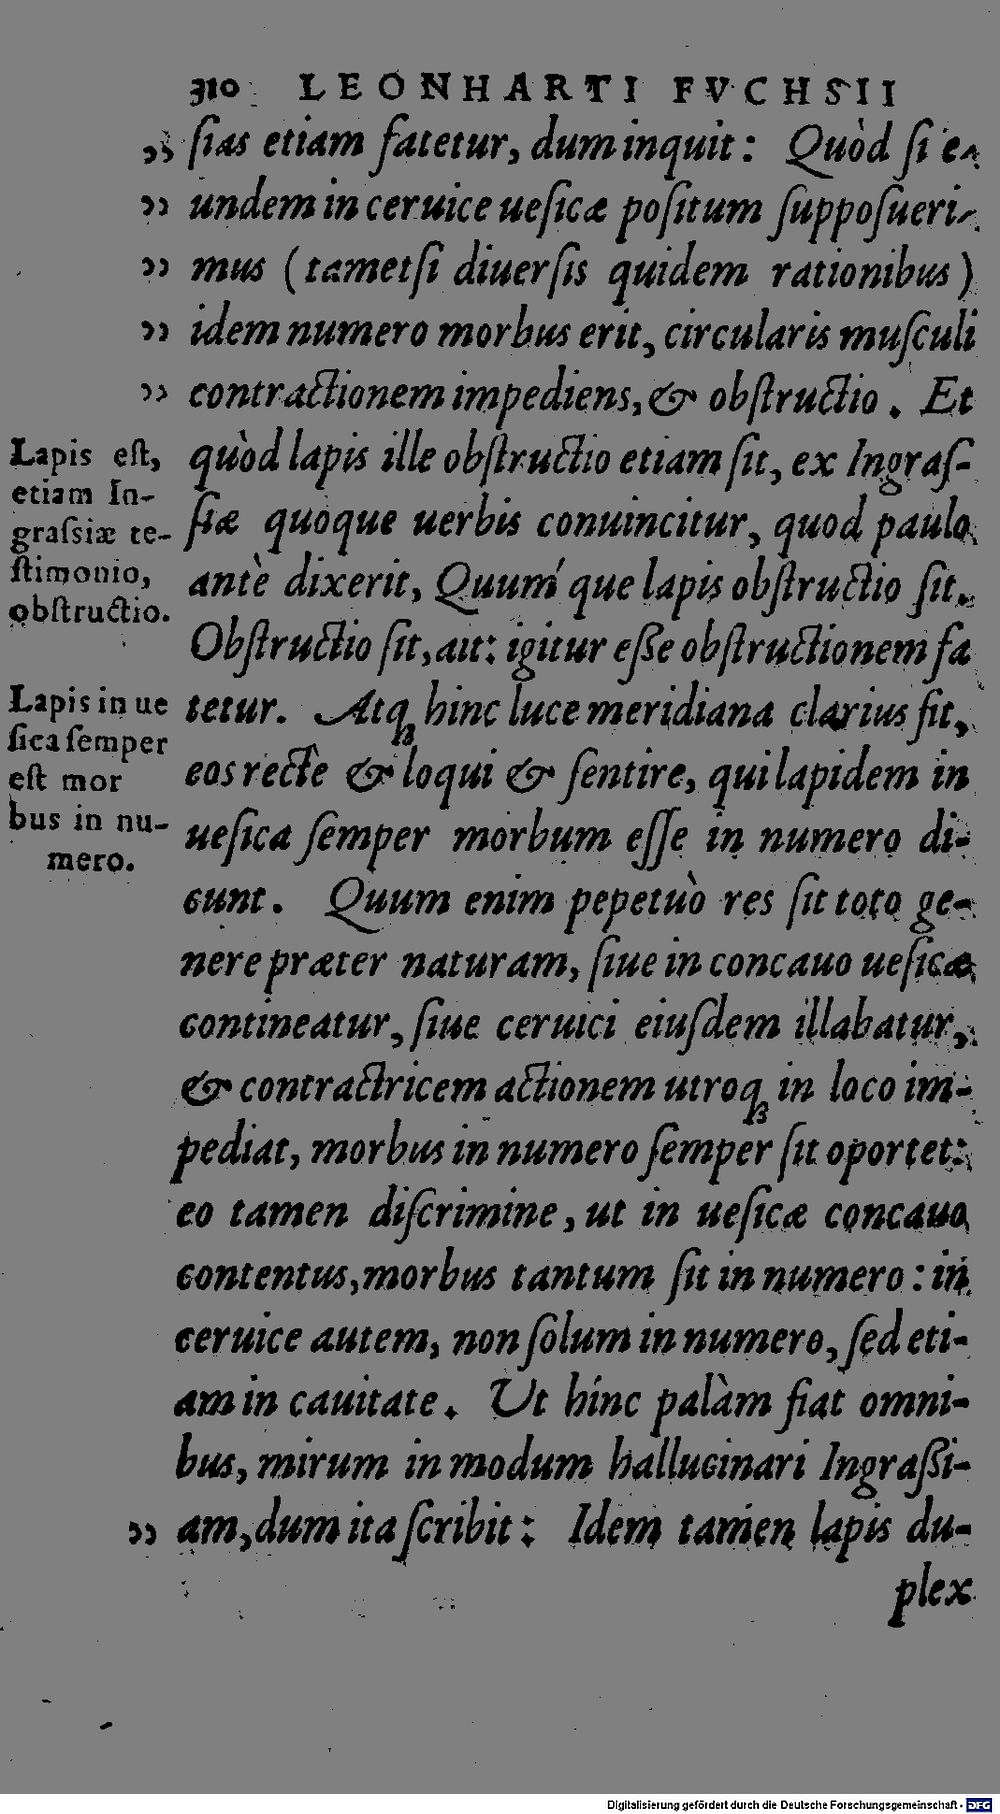 310 LEONHARTI FVCHSII
„ ſias etiam fatetur, dum inquit: Quòd ſi e-
„ undem in ceruice ueſicæ poſitum ſuppoſueri-
„ mus (tametſi diuerſis quidem rationibus)
„ idem numero morbus erit, circularis muſculi
„ contractionem impediens, & obſtructio. Et
quòd lapis ille obſtructio etiam ſit, ex Ingraſ-
ſiæ quoque uerbis conuincitur, quod paulo
antè dixerit, Quuḿ que lapis obſtructio ſit.
Obſtructio ſit, ait: igitur eſſe obſtructionem fa
tetur. Atqꝫ hinc luce meridiana clarius fit,
eos rectè & loqui & ſentire, qui lapidem in
ueſica ſemper morbum eſſe in numero di-
cunt. Quum enim pepetuò res ſit toto ge-
nere præter naturam, ſiue in concauo ueſicæ
contineatur, ſiue ceruici eiuſdem illabatur,
& contractricem actionem utroqꝫ in loco im-
pediat, morbus in numero ſemper ſit oportet:
eo tamen diſcrimine, ut in ueſicæ concauo
contentus, morbus tantum ſit in numero: in
ceruice autem, non ſolum in numero, ſed eti-
am in cauitate. Ut hinc palàm fiat omni-
bus, mirum in modum hallucinari Ingraßi-
„ am, dum ita ſcribit: Idem tamen lapis du-
plex
Lapis eſt,
etiam In-
graſsiæ te-
ſtimonio,
obſtructio.
Lapis in ue
ſica ſemper
eſt mor
bus in nu-
mero.
Digitalisierung gefördert durch die Deutsche Forschungsgemeinschaft - DFG